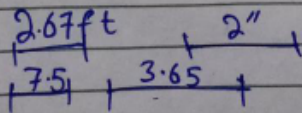 2.67ft 2"
7.5 3.65